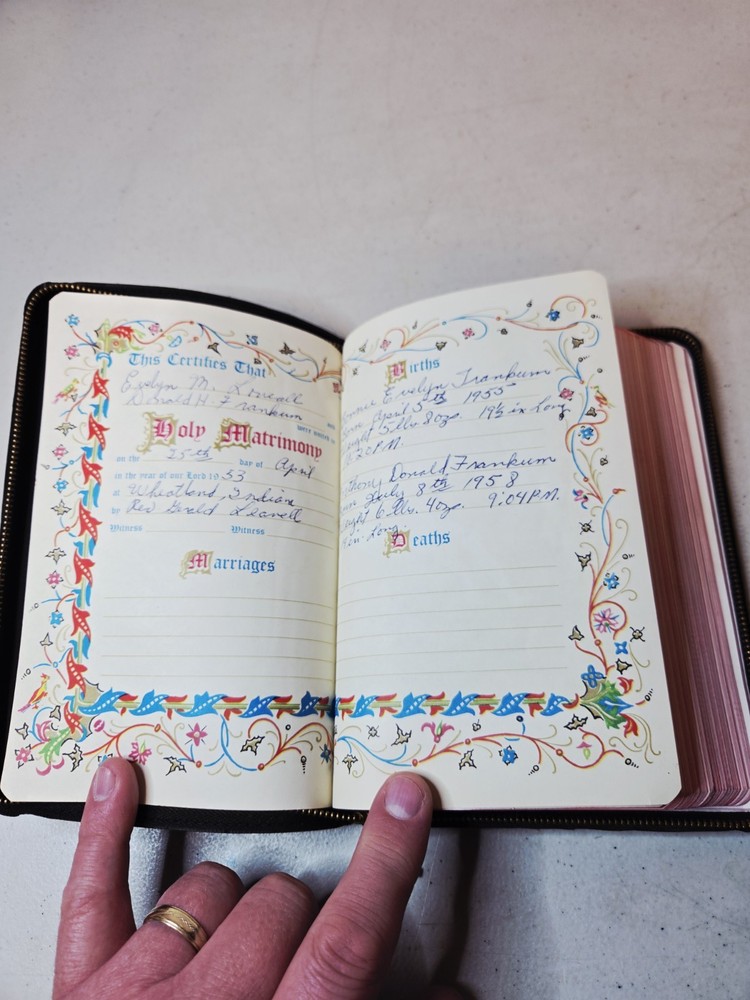 This Certifies That
Evelyn M.
Donald H. Frankum and
were united in
Holy Matrimony
on the 25th day of April
in the year of our Lord 1953
at Wheatland, Indiana
by Rev Gerald Leavell
Witness Witness
Marriages
Births
Evelyn Frankum
April 5th 1955
5 lbs 8 ozs. 19½ in Long
P.M.
Donald Frankum
July 8th 1958
6 lbs. 4 ozs. 9:04 P.M.
in. Long
Deaths